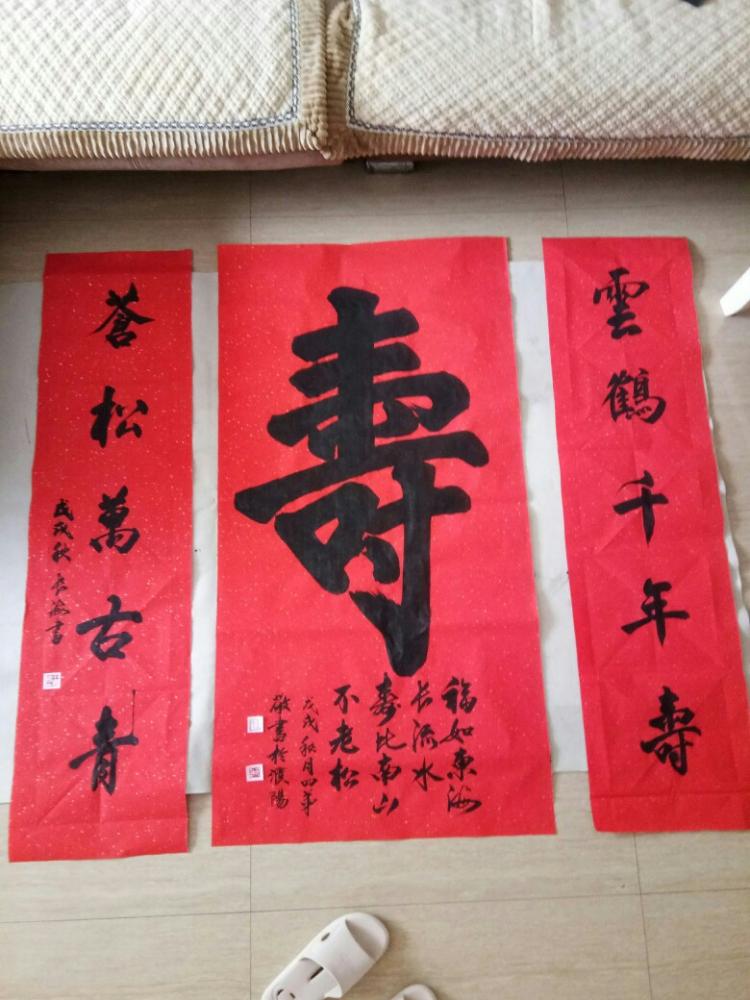 雲鶴千年壽
壽
福如東海
长流水
壽比南山
不老松
戊戌秋月四弟
敬書於濮陽
蒼松萬古青
戊戌秋
書